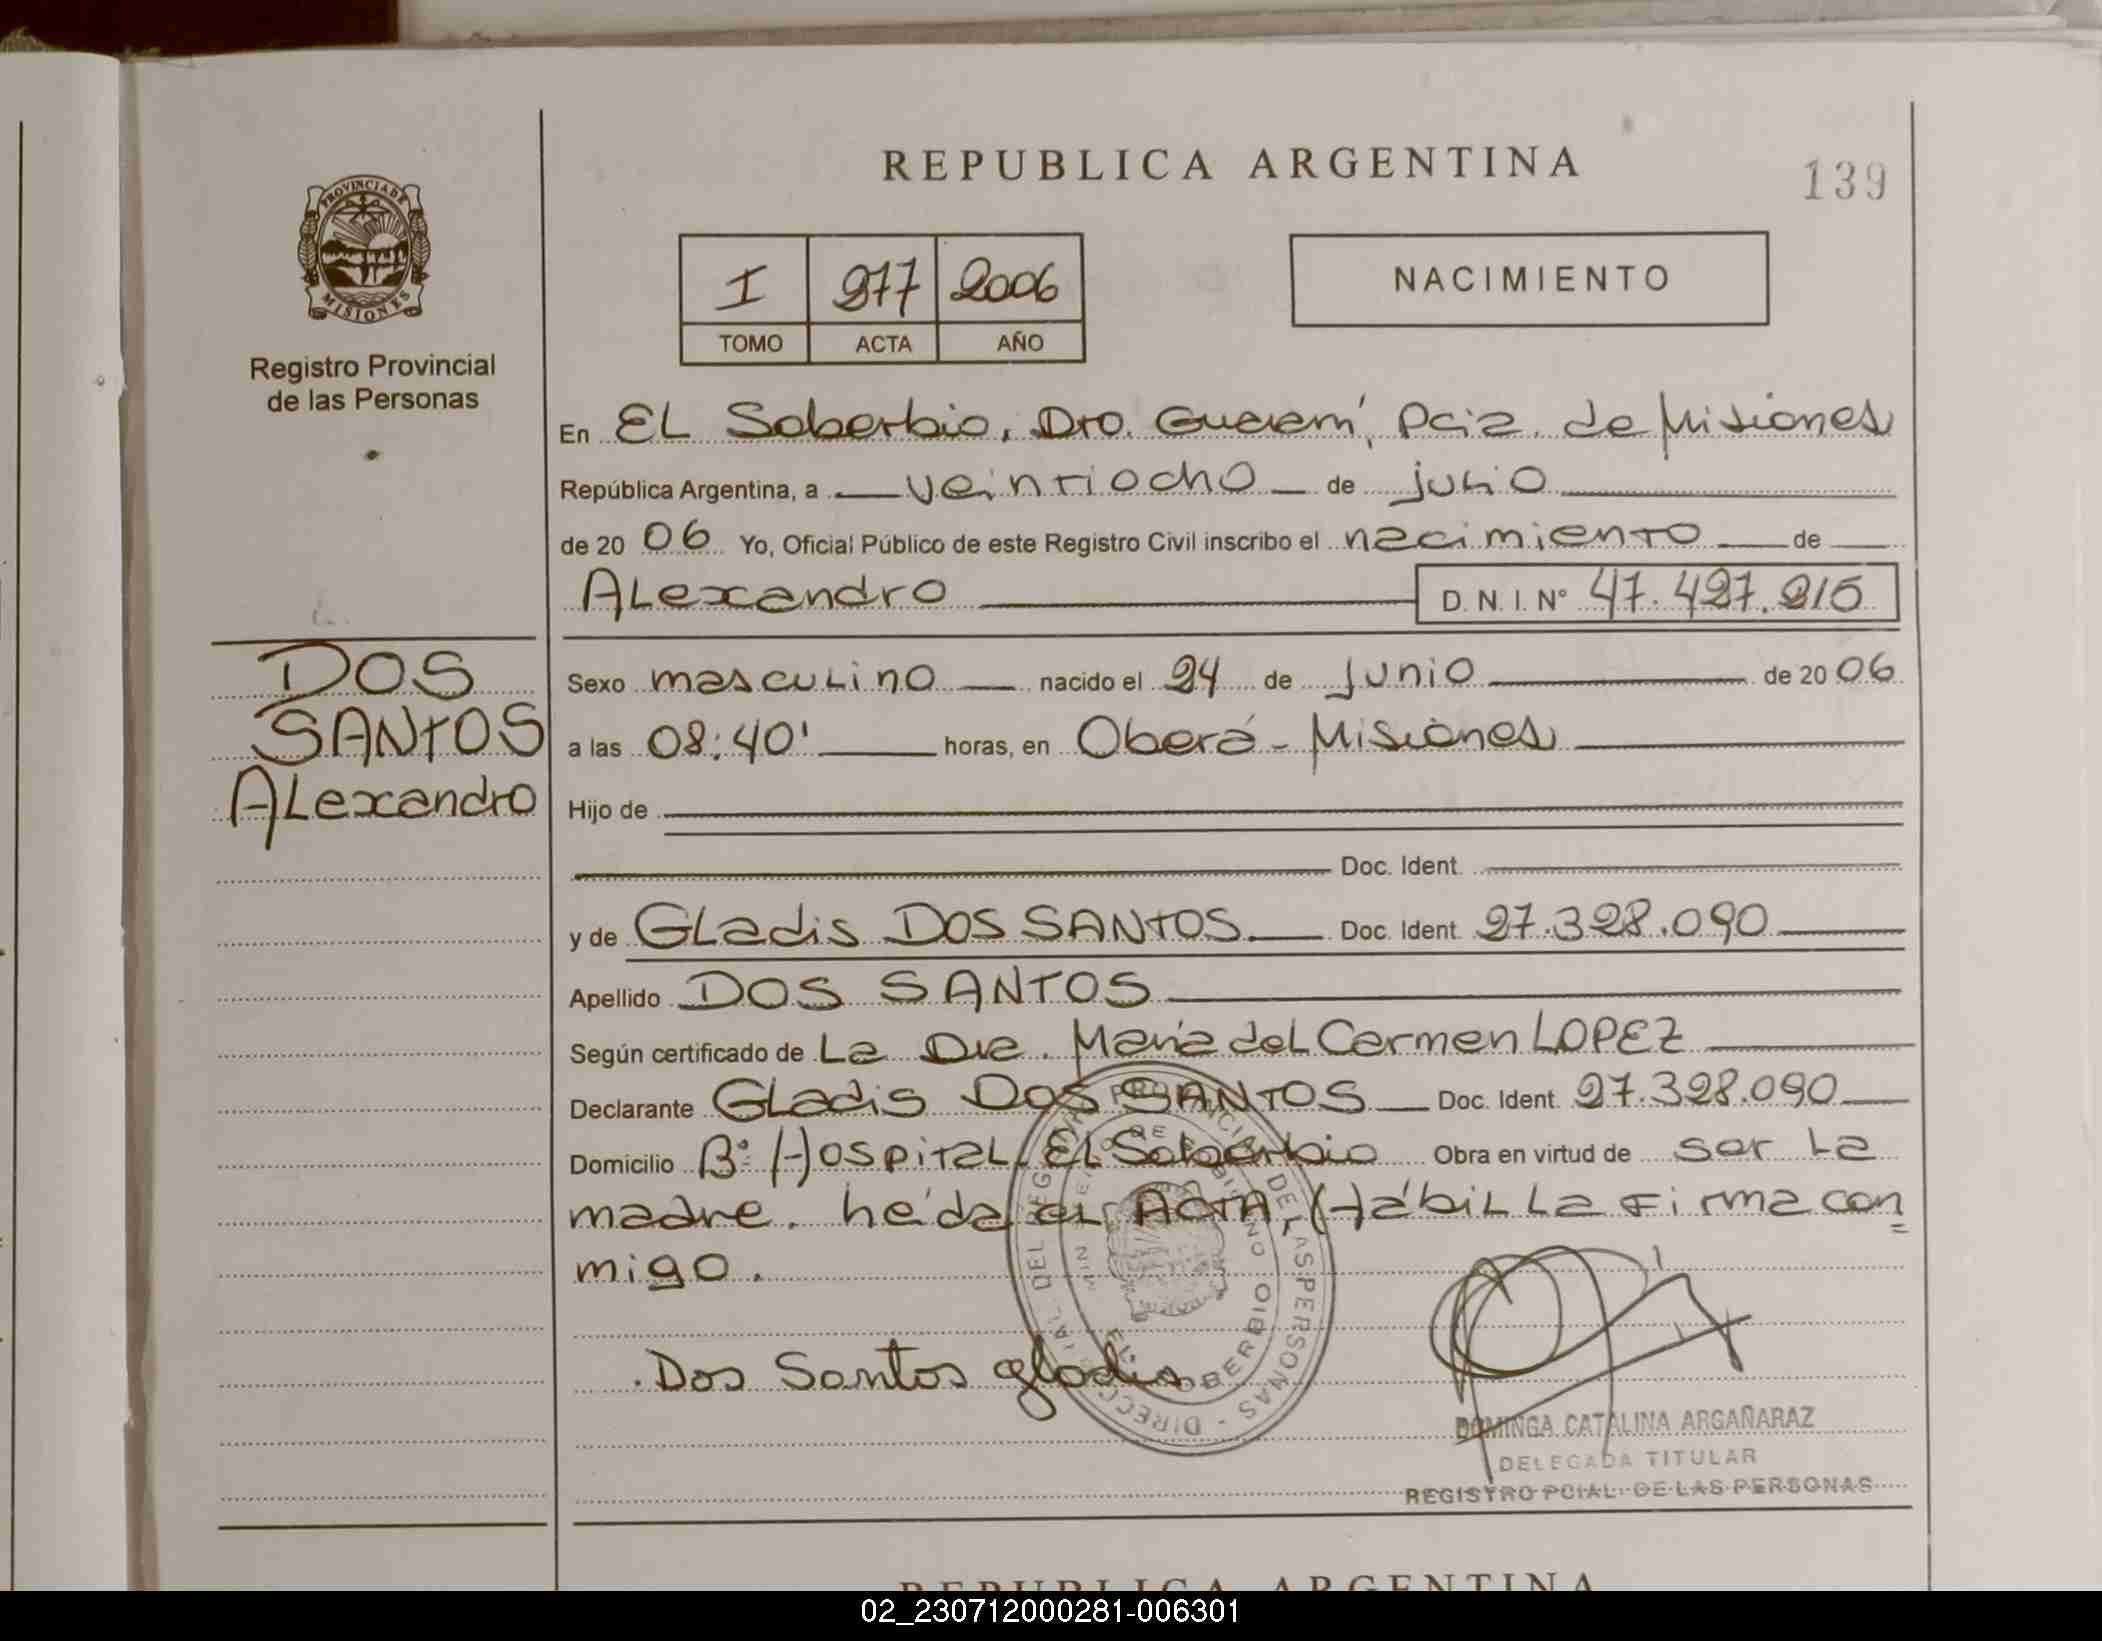 REPUBLICA ARGENTINA
139
PROVINCIA DE
MISIONES
Registro Provincial
de las Personas
I 277 2006
TOMO ACTA AÑO
NACIMIENTO
En EL Soberbio, Dto. Guaraní, Pcia. de Misiones
República Argentina, a veintiocho de julio
de 20 06 Yo, Oficial Público de este Registro Civil inscribo el nacimiento de
Alexandro D. N. I. Nº 47.427.215
DOS
SANTOS
Alexandro
Sexo masculino nacido el 24 de junio de 20 06
a las 08:40' horas, en Oberá - Misiones
Hijo de
Doc. Ident.
y de Gladis DOS SANTOS Doc. Ident. 27.328.090
Apellido DOS SANTOS
Según certificado de La Dra. María del Carmen LOPEZ
Declarante Gladis DOS SANTOS Doc. Ident. 27.328.090
Domicilio Bº Hospital, El Soberbio Obra en virtud de ser la
madre. ACTA, Hábil la firma con
migo.
Dos Santos gladis
DOMINGA CATALINA ARGAÑARAZ
DELEGADA TITULAR
REGISTRO PCIAL. DE LAS PERSONAS
REPUBLICA ARGENTINA
02_230712000281-006301